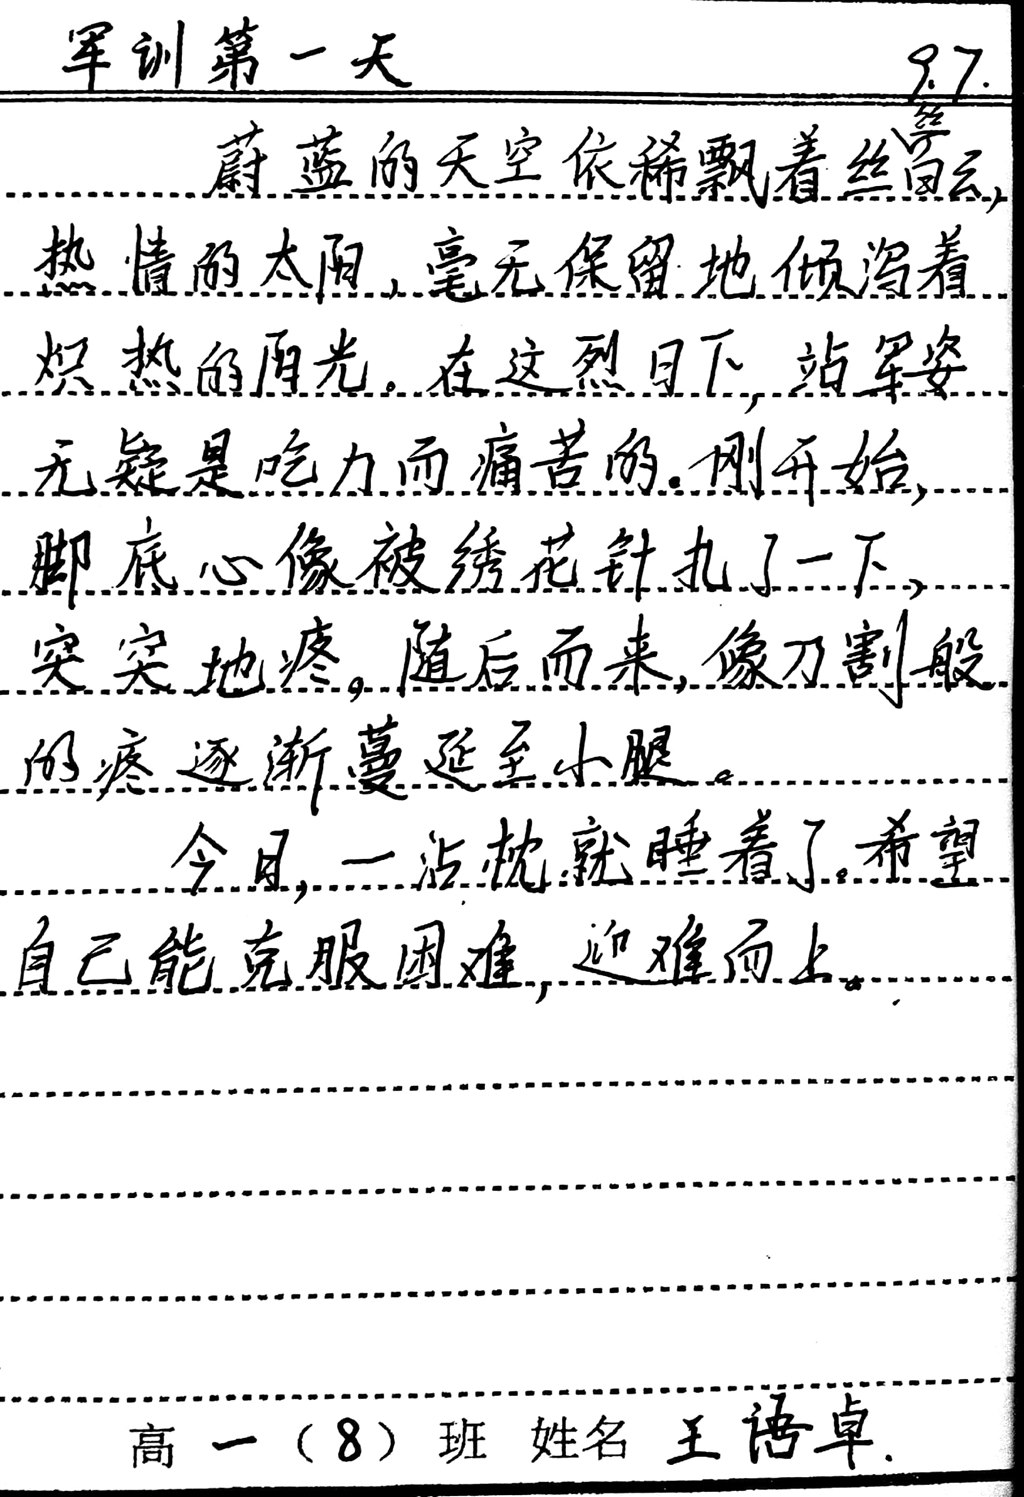 军训第一天 9.7.
蔚蓝的天空依稀飘着丝丝白云,
热情的太阳,毫无保留地倾泻着
炽热的阳光。在这烈日下,站军姿
无疑是吃力而痛苦的。刚开始,
脚底心像被绣花针扎了一下,
突突地疼。随后而来,像刀割般
的疼逐渐蔓延至小腿。
今日,一沾枕就睡着了。希望
自己能克服困难,迎难而上。
高一(8)班 姓名 王语卓.